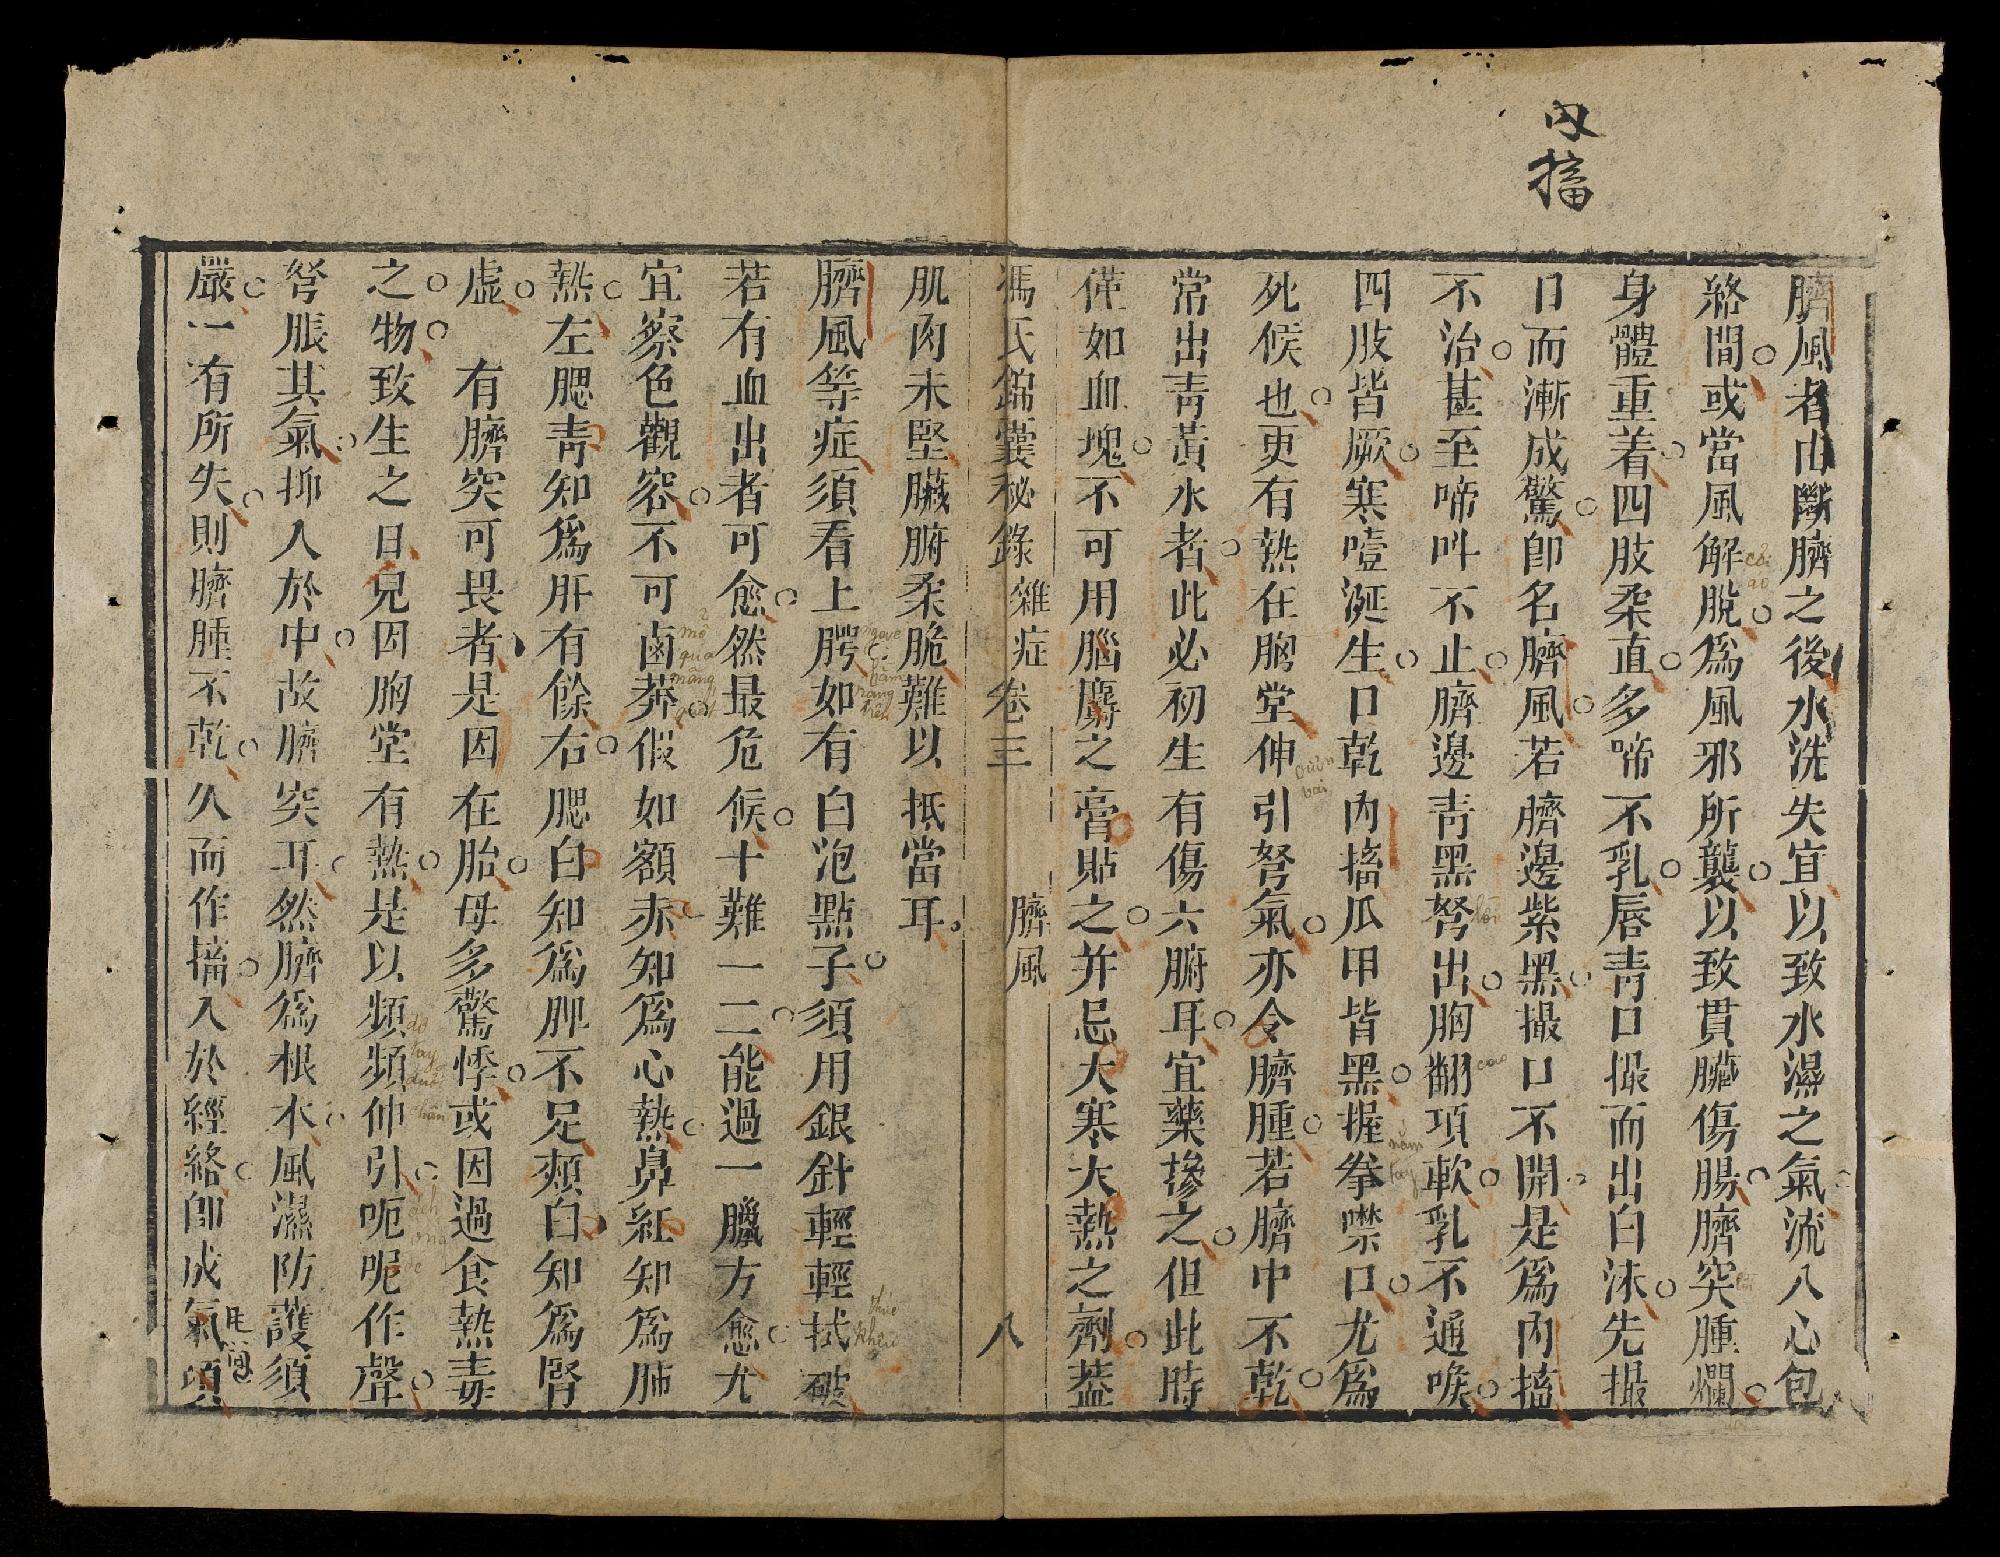 內搐
臍風者由斷臍之後水洗失宜以致水濕之氣流入心包
絡間或當風解脫爲風邪所襲以致貫臟傷腸臍突腫爛
身體重着四肢柔直多啼不乳唇青口撮而出白沫先撮
口而漸成驚卽名臍風若臍邊紫黑撮口不開是爲內搐
不治甚至啼呌不止臍邊青黑努出胸翻項軟乳不通喉
四肢皆厥寒噎涎生口乾內搐瓜甲皆黑握拳噤口尤爲
死候也更有熱在胸堂伸引努氣亦令臍腫若臍中不乾
常出青黃水者此必初生有傷六腑耳宜藥摻之但此時
僅如血塊不可用腦麝之膏貼之并忌大寒大熱之劑葢
馮氏錦囊秘錄 雜症 卷三 臍風 八
肌肉未堅臟腑柔脆難以抵當耳
臍風等症須看上腭如有白泡點子須用銀針輕輕拭破
若有血出者可愈然最危候十難一二能過一臘方愈尤
宜察色觀容不可鹵莽假如額赤知爲心熱鼻紅知爲肺
熱左腮青知爲肝有餘右腮白知爲脾不足頦白知爲腎
虛 有臍突可畏者是因在胎母多驚悸或因過食熱毒
之物致生之日兒因胸堂有熱是以頻頻伸引呃呢作聲
努脹其氣抑入於中故臍突耳然臍爲根本風濕防護須
嚴一有所失則臍腫不乾久而作搐入於經絡卽成氣項